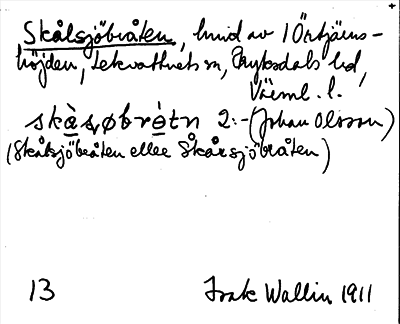 Skålsjöbråten, hmd av 1 Örtjärns-
höjden, Lekvattnets sn, Fryksdals hd,
Värml. l.
skàsøbrètn 2:-(Johan Olsson)
(Skålsjöbråten eller Skårsjöbråten)
13 Frank Wallin 1911